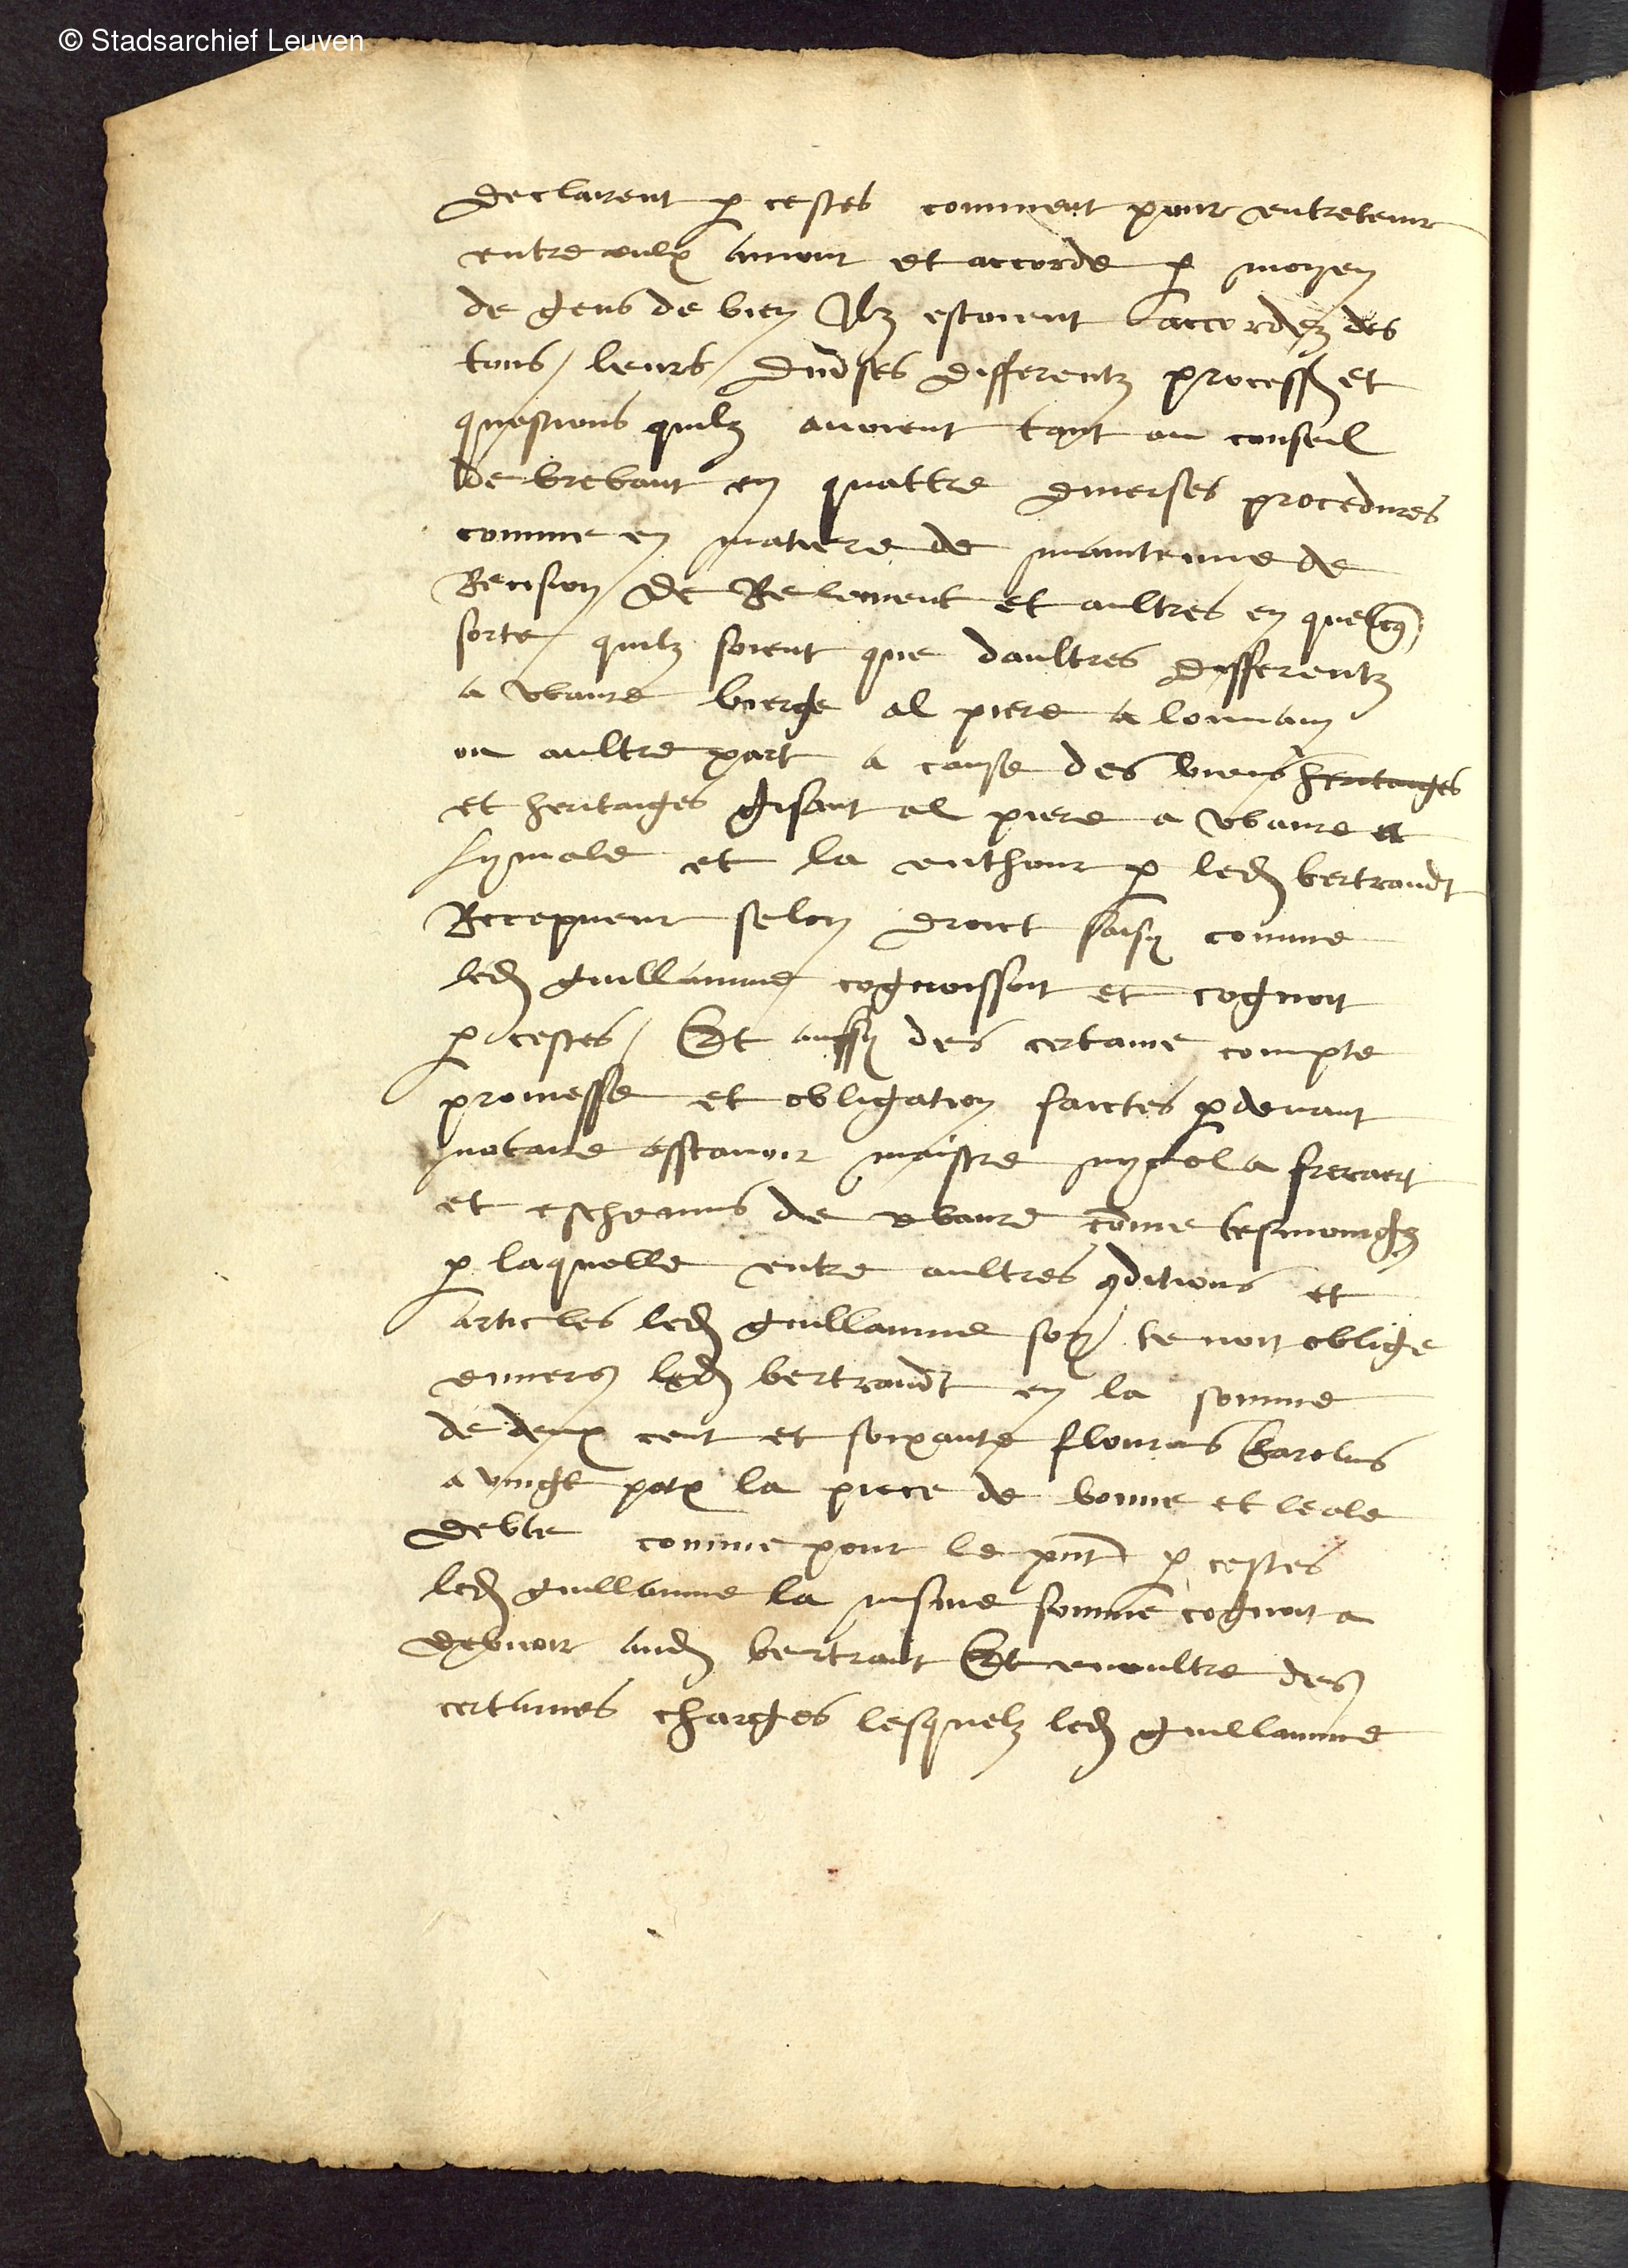 © Stadsarchief Leuven
declairent p cestes comment pour entretenir
entre eulx amour et accorde p moyen
de gens de bien Ilz estoient accordez des
tous leurs differentz process et
questions quilz avoient tant au conseil
de brebant en quattre diverses procedures
comme en matiere de maintenue de
Recision de Relement et aultres en quelcq
sorte quilz soient que daultres differentz
a vbavre bierge al piere a louvain
ou aultre part a cause des biens heritaiges
et heritaiges gisant al piere a vbavre et
lymale et la enthour p led bertrandt
Recepveur selon droict saisy comme
led guillamme cognoissoit et cognoit
p cestes Et aussy des certaine compte
promesse et obligation faictes p devant
notaire asscavoir maistre nycola
et eschevins de vbavre come tesmoingz
p laquelle entre aultres 9ditions et
articles led guillamme soy tenoit oblige
envers led bertrandt en la somme
de deux cent et soixante flourins Carolus
a vingt patx la piece de bonne et leale
debte comme pour le pnt p cestes
led guillamme la mesme somme cognoit a
debvoir aud bertrant Et enoultre des
certaines charges lesquelz led guillamme